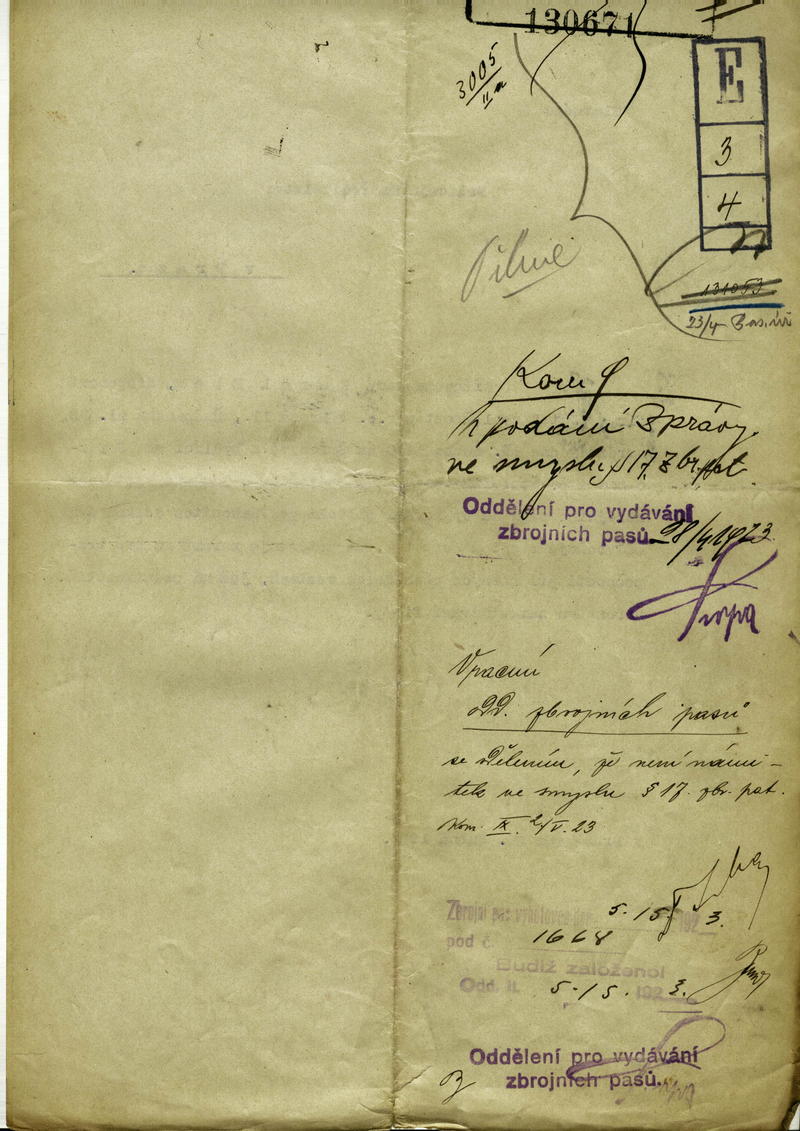 130671
3005
II a
E
3
4
Pilné
131053
23/4
Kom
k podání zprávy
ve smyslu § 17. zbr. pat.
Oddělení pro vydávání
zbrojních pasů. 28/4 1923
Vrácení
odd. zbrojních pasů
se sdělením, že není námi-
tek ve smyslu § 17. zbr. pat.
Kom. IX. 2/V. 23
Zbrojní pas 5. 5. 192 3.
pod č. 1668
Budiž založeno!
Odd. II. 5. 5. 192 3.
Oddělení pro vydávání
zbrojních pasů.